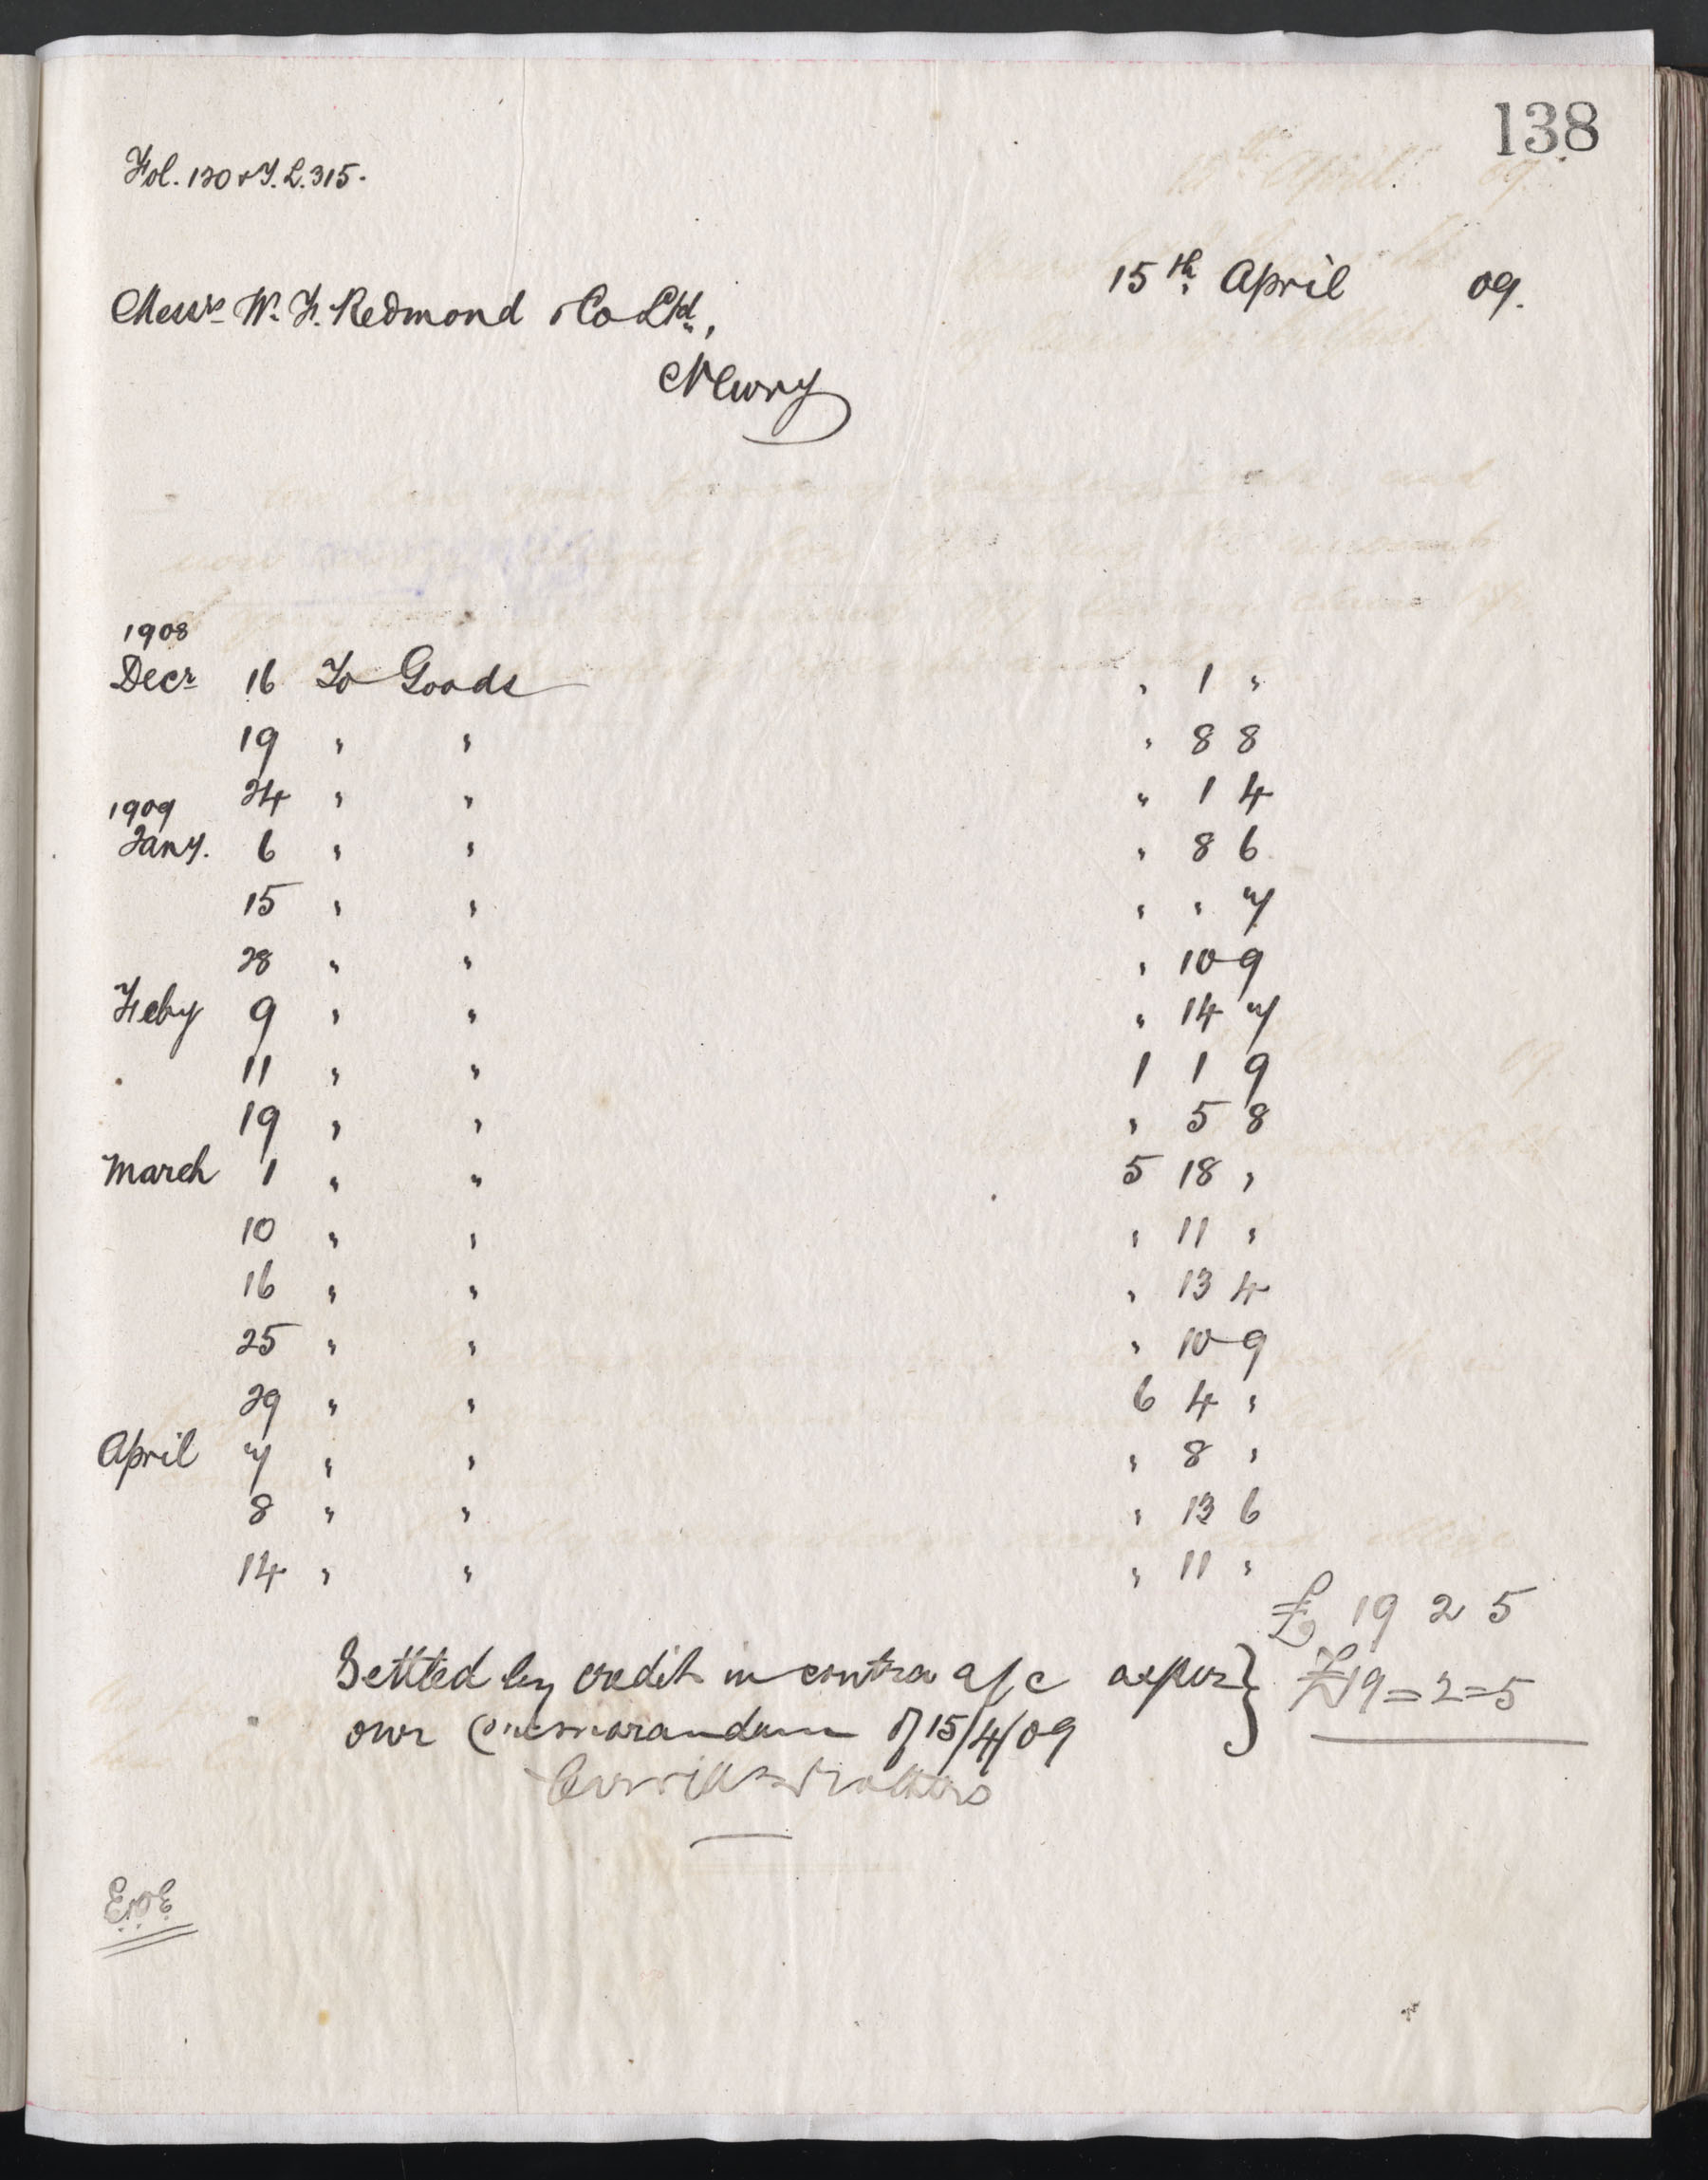 138
Fol. 130 & T. L. 315.
15th April 09.
Messrs W. F. Redmond & Co Ltd,
Newry
1908
Decr 16 To Goods " 1 "
19 " " " 8 8
24 " " " 1 4
1909
Jany. 6 " " " 8 6
15 " " " " 7
28 " " " 10 9
Feby 9 " " " 14 7
11 " " 1 1 9
19 " " " 5 8
March 1 " " 5 18 "
10 " " " 11 "
16 " " " 13 4
25 " " " 10 9
29 " " 6 4 "
April 7 " " " 8 "
8 " " " 13 6
14 " " " 11 "
£ 19 2 5
Settled by credit in contra a/c as per } £19=2=5
our memorandum of 15/4/09
Brothers
E.&O.E.